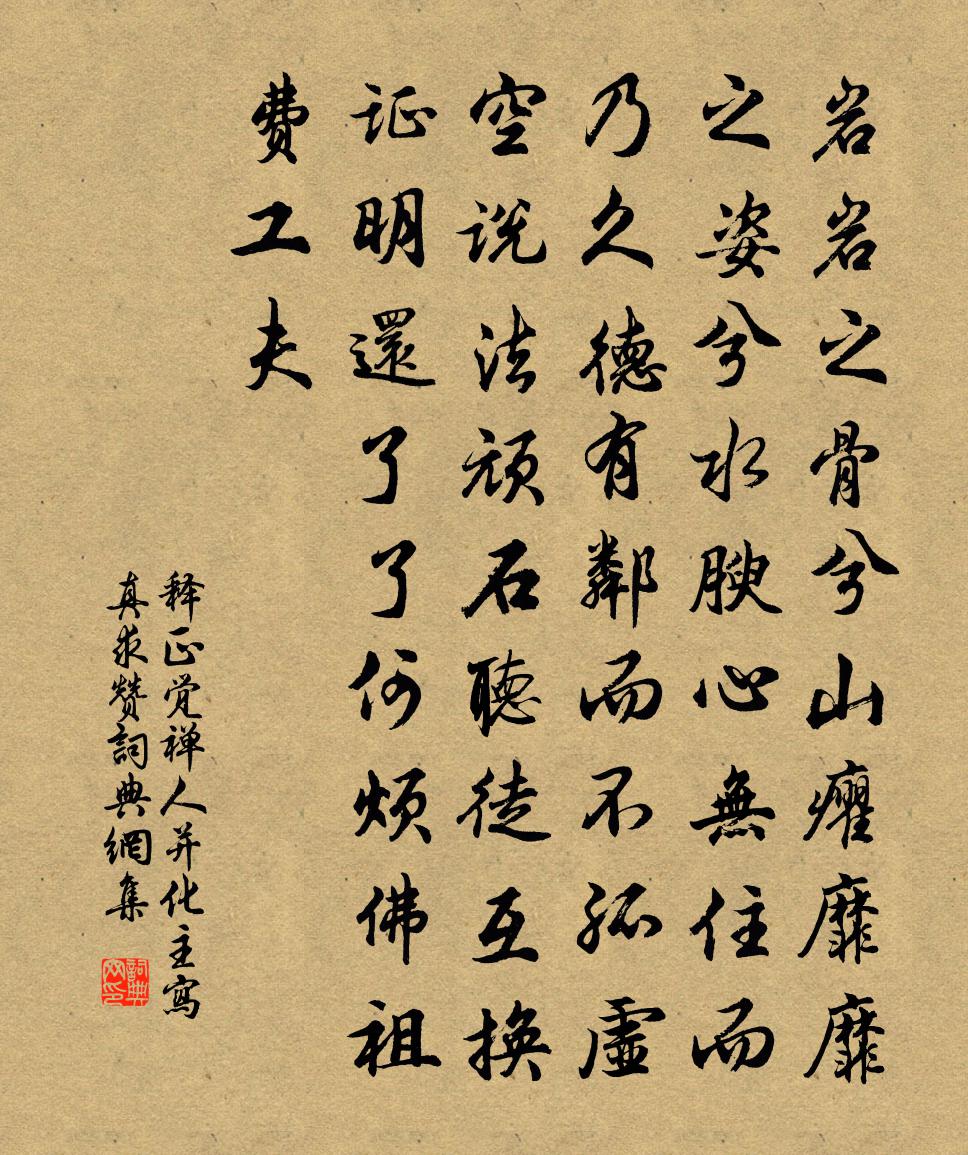 岩岩之骨兮山癯靡靡
之姿兮水腴心無住而
乃久德有鄰而不孤虛
空说法頑石聽徒互换
证明還了了何烦佛祖
費工夫
释正觉禅人并化主寫
真求赞詞典網集
詞典
网印